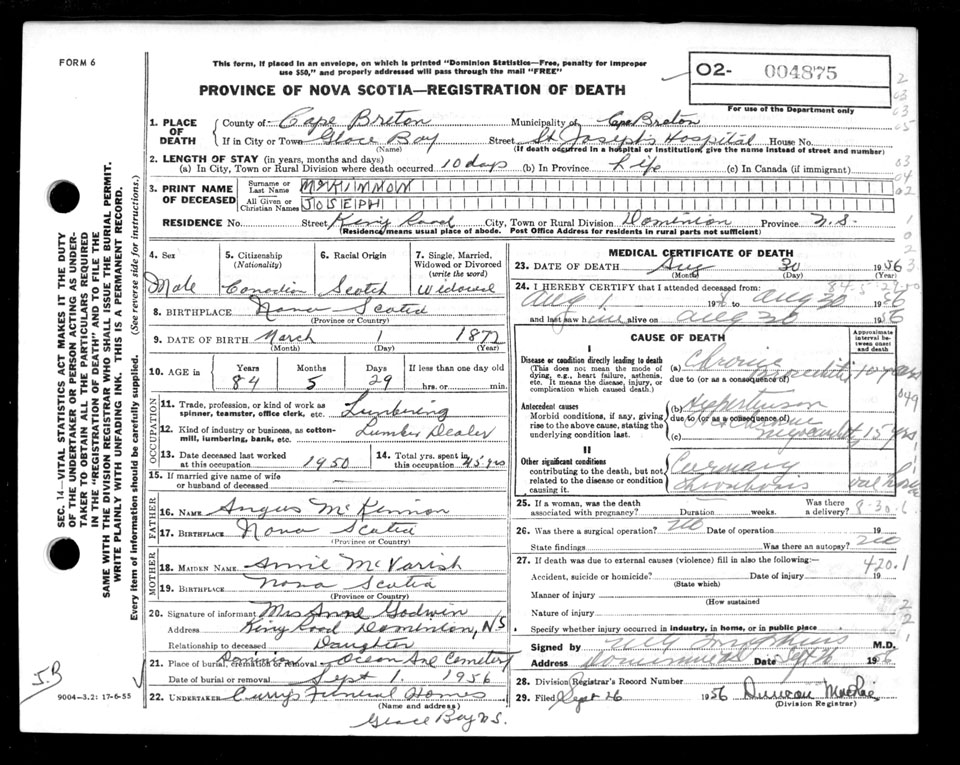 FORM 6
This form, if placed in an envelope, on which is printed "Dominion Statistics—Free, penalty for improper
use $50," and properly addressed will pass through the mail "FREE"
02- 004875
For use of the Department only
PROVINCE OF NOVA SCOTIA—REGISTRATION OF DEATH
1. PLACE OF DEATH
County of Cape Breton Municipality of Cape Breton
If in City or Town Glace Bay Street St Joseph's Hospital House No.
(Name) (If death occurred in a hospital or institution, give the name instead of street and number)
2. LENGTH OF STAY (in years, months and days)
(a) In City, Town or Rural Division where death occurred 10 days (b) In Province Life (c) In Canada (if immigrant)
3. PRINT NAME OF DECEASED
Surname or Last Name McKINNON
All Given or Christian Names JOSEPH
RESIDENCE No. Street King Road City, Town or Rural Division Dominion Province N.S.
(Residence means usual place of abode. Post Office Address for residents in rural parts not sufficient)
4. Sex
Male
5. Citizenship (Nationality)
Canadian
6. Racial Origin
Scotch
7. Single, Married, Widowed or Divorced (write the word)
Widowed
8. BIRTHPLACE Nova Scotia
(Province or Country)
9. DATE OF BIRTH March 1 1872
(Month) (Day) (Year)
10. AGE in
Years Months Days If less than one day old
84 5 29 hrs. or min.
OCCUPATION
11. Trade, profession, or kind of work as spinner, teamster, office clerk, etc. Lumbering
12. Kind of industry or business, as cotton-mill, lumbering, bank, etc. Lumber Dealer
13. Date deceased last worked at this occupation 1950
14. Total yrs. spent in this occupation 45 yrs
15. If married give name of wife or husband of deceased —
FATHER
16. Name Angus McKinnon
17. BIRTHPLACE Nova Scotia
(Province or Country)
MOTHER
18. MAIDEN NAME Annie McVarish
19. BIRTHPLACE Nova Scotia
(Province or Country)
20. Signature of informant Mrs Anne Godwin
Address King Road Dominion, NS
Relationship to deceased Daughter
21. Place of burial, cremation or removal Dominion Ocean Ave Cemetery
Date of burial or removal Sept 1. 1956
22. UNDERTAKER Curry Funeral Homes
(Name and address)
Glace Bay N.S.
MEDICAL CERTIFICATE OF DEATH
23. DATE OF DEATH Aug 30 1956
(Month) (Day) (Year)
84-5-29
24. I HEREBY CERTIFY that I attended deceased from:
Aug 1 1956 to Aug 30 1956
and last saw him alive on Aug 30 1956
CAUSE OF DEATH
Approximate interval between onset and death
I
Disease or condition directly leading to death
(This does not mean the mode of dying, e.g., heart failure, asthenia, etc. It means the disease, injury, or complication which caused death.)
(a) Chronic 10 years
due to (or as a consequence of)
Antecedent causes
Morbid conditions, if any, giving rise to the above cause, stating the underlying condition last.
(b) Hypertension
due to (or as a consequence of)
(c) 15 yrs
II
Other significant conditions
contributing to the death, but not related to the disease or condition causing it.
Coronary
thrombosis
25. If a woman, was the death associated with pregnancy? Duration weeks. Was there a delivery?
26. Was there a surgical operation? no Date of operation 19
State findings Was there an autopsy? no
27. If death was due to external causes (violence) fill in also the following:—
420.1
Accident, suicide or homicide? Date of injury 19
(State which)
Manner of injury
(How sustained)
Nature of injury
Specify whether injury occurred in industry, in home, or in public place
Signed by M.D.
Address Dominion Date Sept 1956
28. Division Registrar's Record Number
29. Filed Sept 26 1956 Duncan
(Division Registrar)
SEC. 14—VITAL STATISTICS ACT MAKES IT THE DUTY
OF THE UNDERTAKER OR PERSON ACTING AS UNDER-
TAKER TO OBTAIN ALL THE PARTICULARS REQUIRED
IN THE "REGISTRATION OF DEATH" AND TO FILE THE
SAME WITH THE DIVISION REGISTRAR WHO SHALL ISSUE THE BURIAL PERMIT.
WRITE PLAINLY WITH UNFADING INK. THIS IS A PERMANENT RECORD.
Every item of information should be carefully supplied. (See reverse side for instructions.)
J.B
9004—3.2: 17-6-55